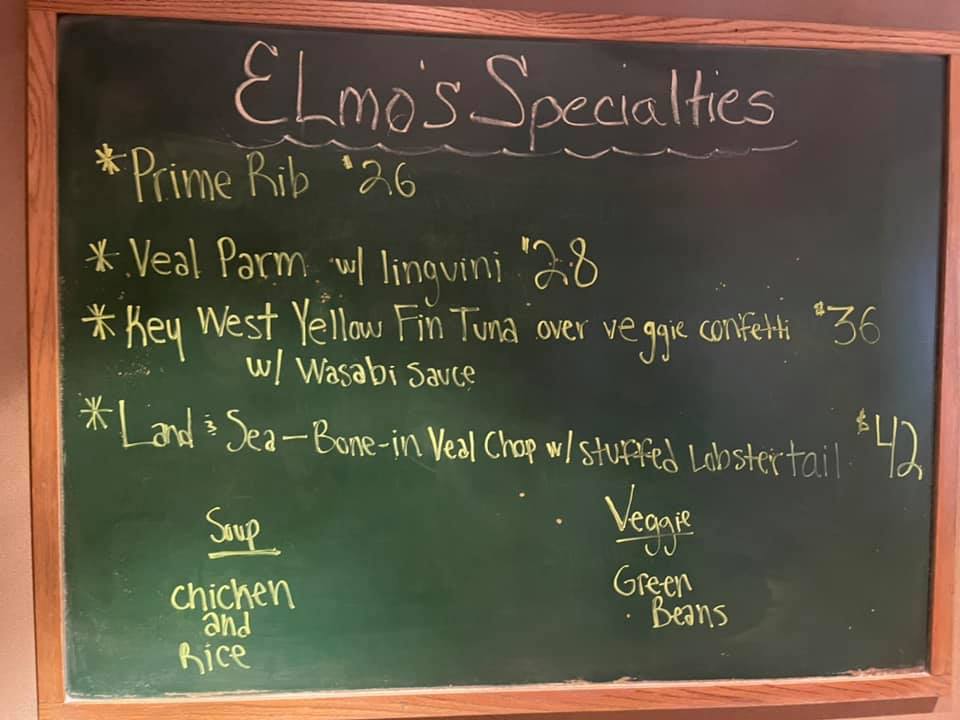 ELmo's Specialties
* Prime Rib $26
* Veal Parm w/ linguini $28
* Key West Yellow Fin Tuna over veggie confetti $36
w/ Wasabi Sauce
* Land & Sea - Bone-in Veal Chop w/ stuffed Lobster tail $42
Soup
Chicken
and
Rice
Veggie
Green
Beans